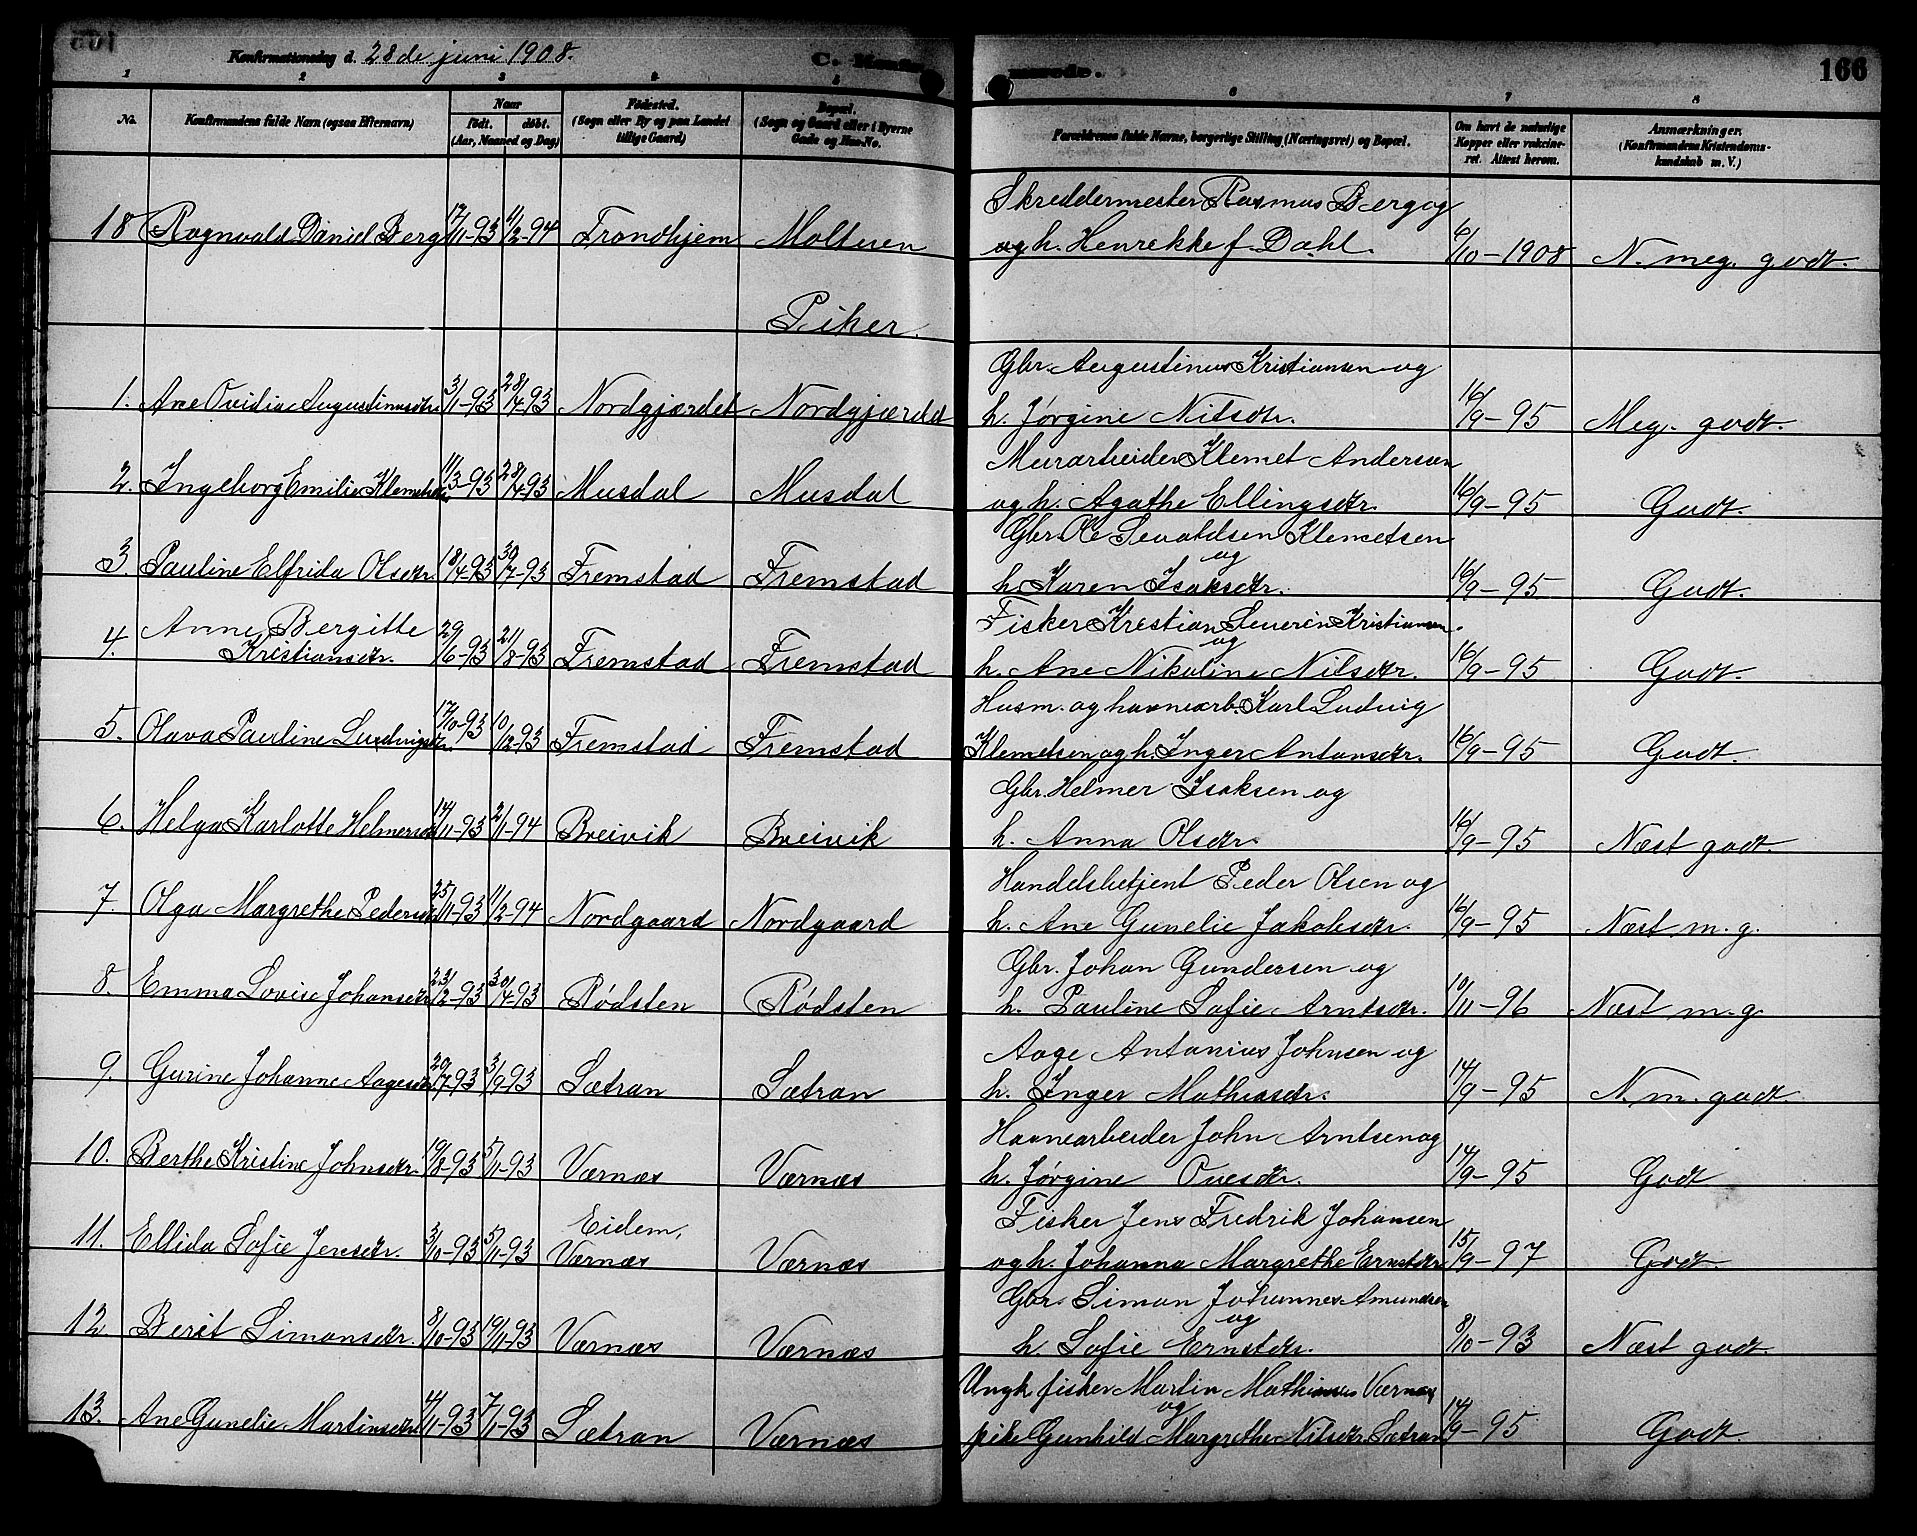 Konfirmationsdag d. 28de juni 1908.
166
1 2 3 4 5 6 7 8
No.
Konfirmandens fulde Navn (ogsaa Efternavn)
Naar
født. døbt.
(Aar, Maaned og Dag)
Fødested.
(Sogn eller By og paa Landet
tillige Gaard)
Bopæl.
(Sogn og Gaard eller i Byerne
Gade og Hus-No.
Forældrenes fulde Navne, borgerlige Stilling (Næringsvei) og Bopæl.
Om havt de naturlige
Kopper eller vakcine-
ret. Attest herom.
Anmærkninger.
(Konfirmandens Kristendoms-
kundskab m. V.)
Skreddermester Rasmus Berg og
18 Ragnvald Daniel Berg 17/11-93 11/2-94 Trondhjem Moltuen og h. Henrekke f. Dahl. 6/10-1908 N. meg. godt.
Piker.
Gbr. Augustinus Kristiansen og
1. Ane Ovidia Augustinusdtr. 3/1-93 28/4-93 Nordgjærdet Nordgjærdet h. Jørgine Nilsdtr. 16/9-95 Meg. godt.
Murarbeider Klemet Andersen
2. Ingeborg Emilie Klemetsdtr. 11/3-93 28/4-93 Musdal Musdal og h. Agathe Ellingsdtr. 16/9-95 Godt.
Gbr. Ole Sevaldsen Klemetsen
og
3. Pauline Elfrida Olsdtr. 18/4-93 30/7-93 Fremstad Fremstad h. Karen Isaksdtr. 16/9-95 Godt.
Fisker Kristian Severin Kristiansen
og
4. Anne Bergitte
Kristiansdtr. 29/6-93 21/8-93 Fremstad Fremstad h. Ane Nikoline Nilsdtr. 16/9-95 Godt.
Husm. og havnearb. Karl Ludvig
5. Olava Pauline Ludvigsdtr. 17/10-93 10/12-93 Fremstad Fremstad Klemetsen og h. Inger Antonsdtr. 16/9-95 Godt
Gbr. Helmer Isaksen og
6. Helga Karlotte Helmersdtr 14/11-93 2/1-94 Breivik Breivik h. Anna Olsdtr. 16/9-95 Næst godt.
Handelsbetjent Peder Olsen og
7. Olga Margrethe Pedersdtr 25/11-93 11/2-94 Nordgaard Nordgaard h. Ane Gunelie Jakobsdtr. 16/9-95 Næst m. g.
Gbr. Johan Gundersen og
8. Emma Lovise Johansdtr 23/2-93 30/4-93 Rødsten Rødsten h. Pauline Sofie Arntsdtr. 10/11-96 Næst m. g.
Aage Antonius Johnsen og
9. Gurine Johanne Aagesdtr 20/7-93 3/9-93 Sætran Sætran h. Inger Mathiasdtr. 14/9-95 N. m. godt.
Havnearbeider John Arntsen og
10. Berthe Kristine Johnsdtr. 19/8-93 5/11-93 Værnæs Værnæs h. Jørgine Ovesdtr. 14/9-95 Godt
Fisker Jens Fredrik Johansen
11. Ellida Sofie Jensdtr. 3/10-93 5/11-93 Eidem,
Værnæs Værnæs og h. Johanna Margrethe Ernstdtr 15/9-97 Godt.
Gbr. Simon Johannes Amundsen
og
12 Berit Simonsdtr. 8/10-93 19/11-93 Værnæs Værnæs h Sofie Ernstdtr. 8/10-93 Næst godt.
Ungk. fisker Martin Mathiasen Værnes
og
13. Ane Gunelie Martinsdtr. 4/11-93 7/1-93 Sætran Værnæs pike Gunhild Margrethe Nilsdtr. Sætran 14/9-95 Godt.